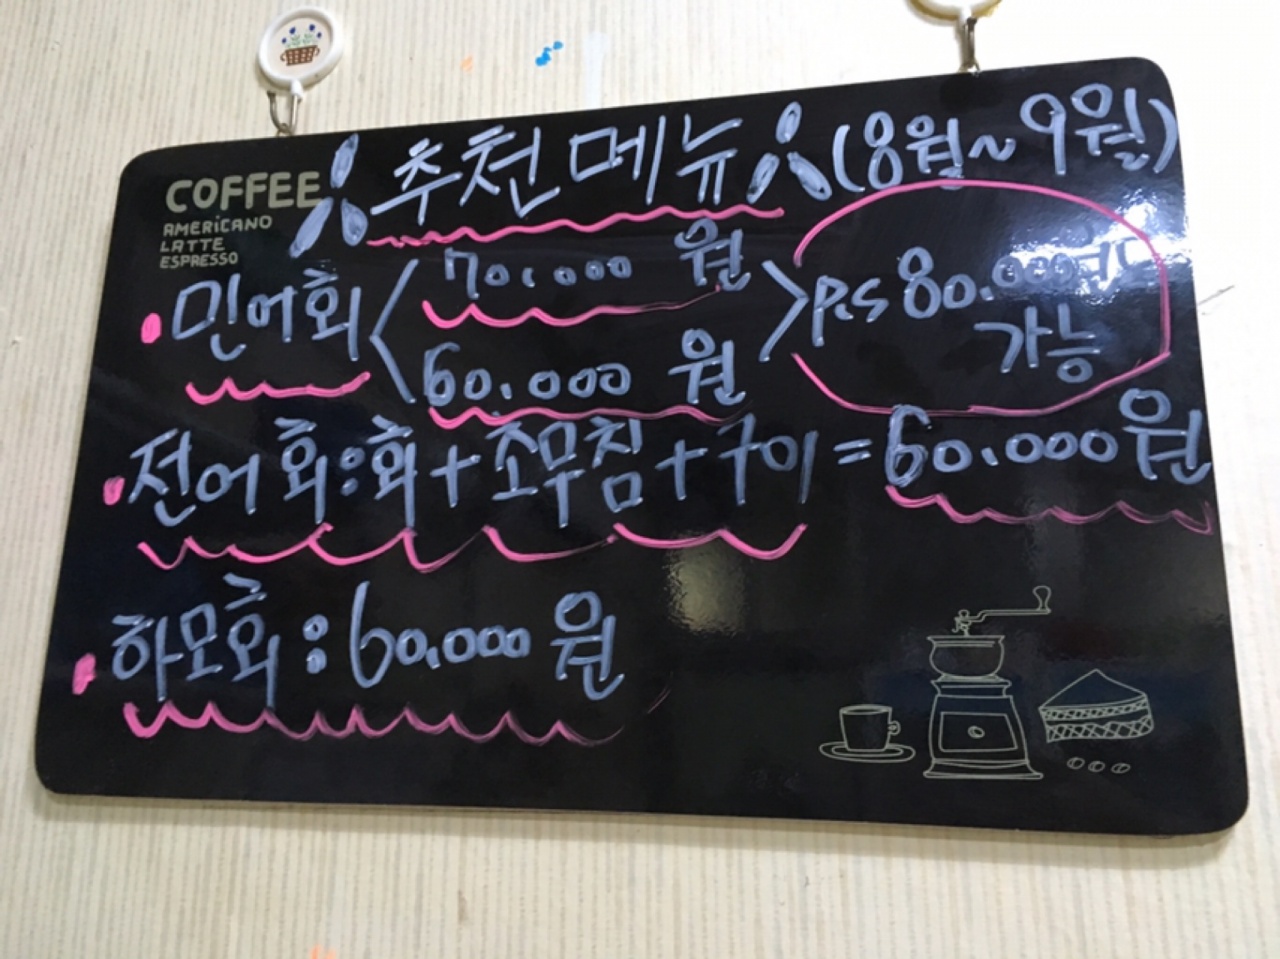 COFFEE
AMERICANO
LATTE
ESPRESSO
추천메뉴 (8월~9월)
민어회 < 70.000 원
60.000 원 > P.S 80.000원도
가능
전어회:회+조무침+구이=60.000원
하모회:60.000원